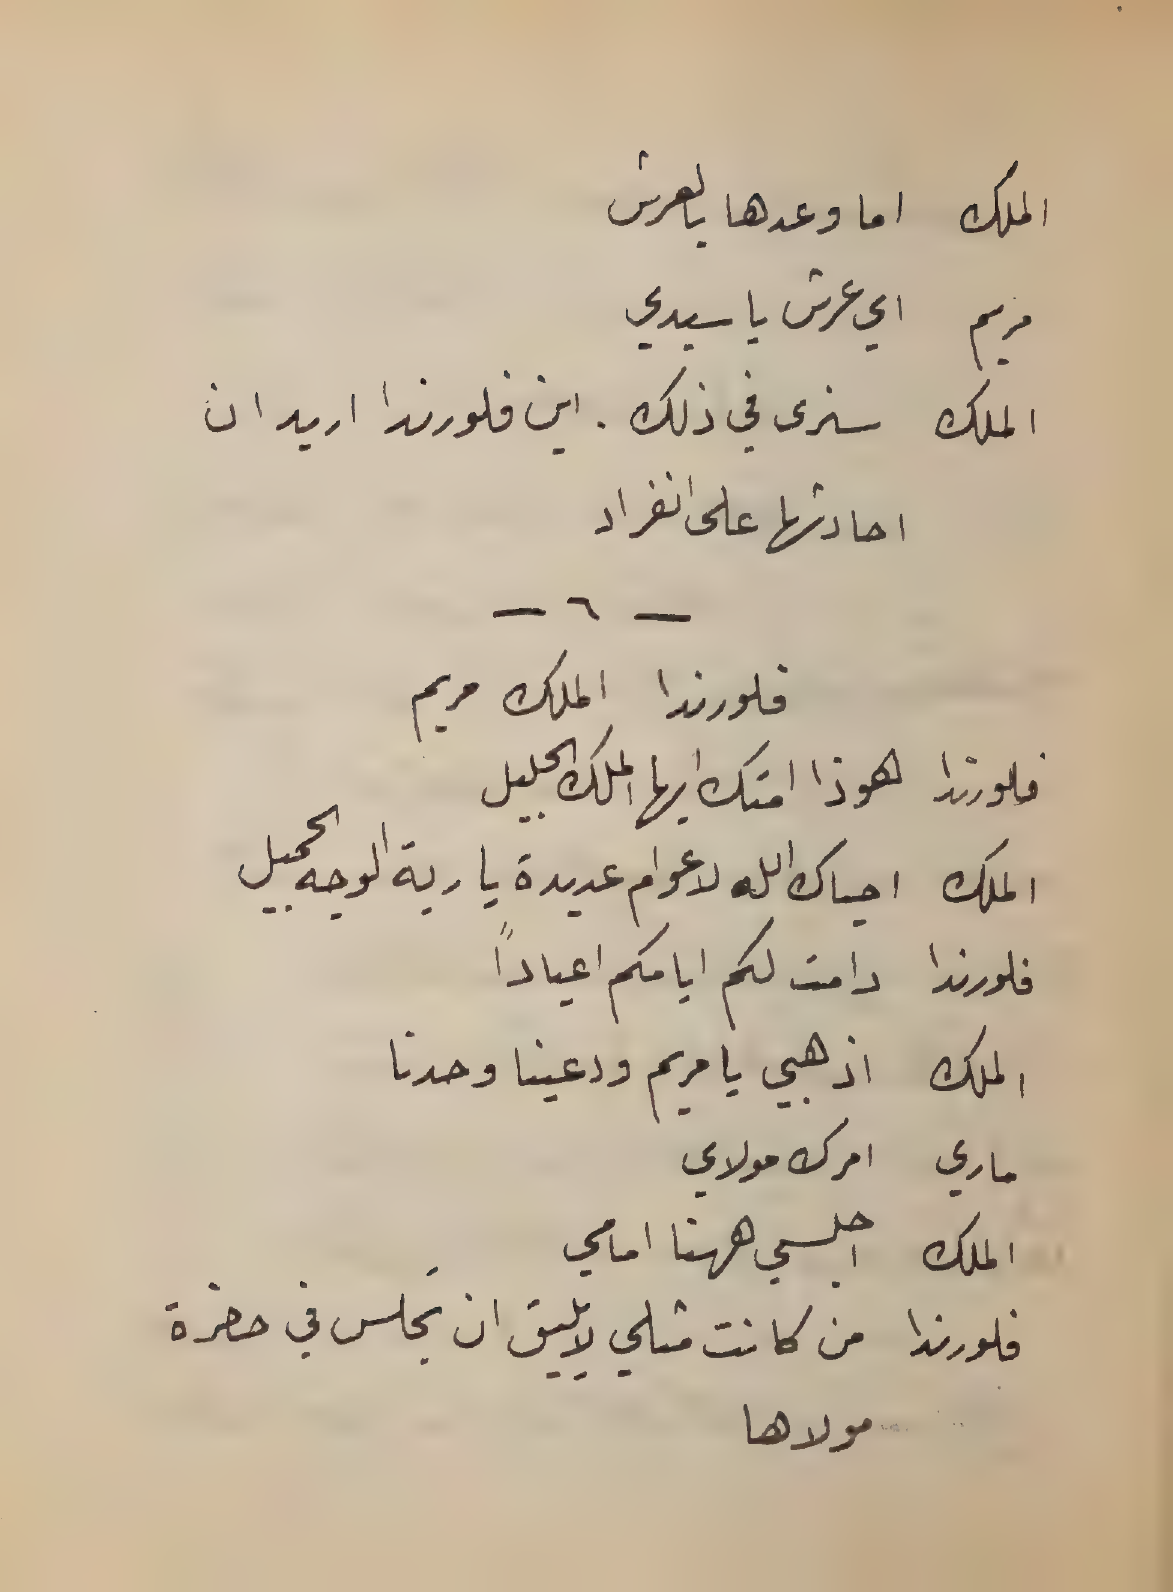 الملك اما وعدها بالعرش
مريم اي عرش يا سيدي
الملك سنرى في ذلك . اين فلورندا اريد ان
احادثها على انفراد
— ٦ —
فلورندا الملك مريم
فلورندا هوذا امتك ايها الملك الجليل
الملك احياك الله لاعوام عديدة يا ربة الوجه الجميل
فلورندا دامت لكم ايامكم اعياداً
الملك اذهبي يا مريم ودعينا وحدنا
ماري امرك مولاي
الملك اجلسي ههنا امامي
فلورندا من كانت مثلي لا يليق ان تجلس في حضرة
مولاها